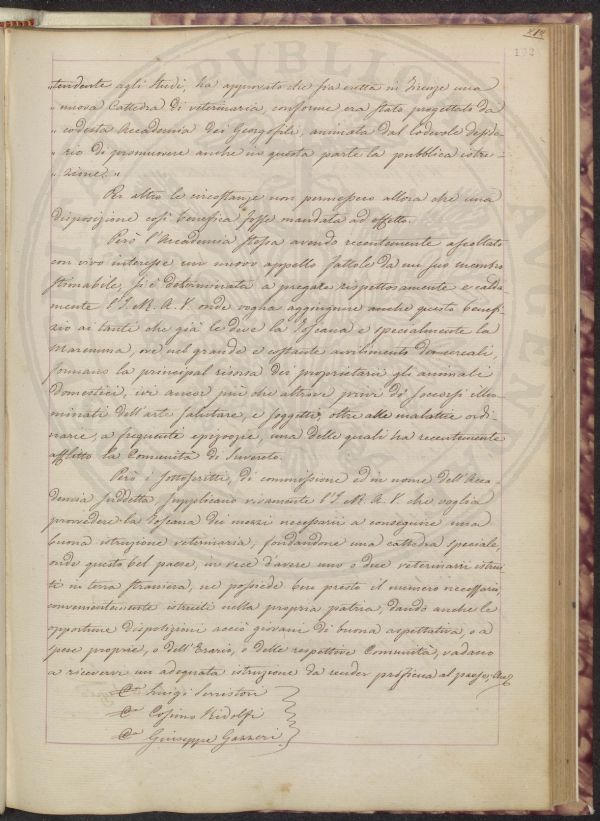 212
192
„tendente agli Studj, ha approvato che sia eretta in Firenze una
„ nuova Cattedra di veterinaria, conforme era stato progettato da
„ codesta Accademia dei Georgofili, animata dal lodevole deside-
„ rio di promuovere anche in questa parte la pubblica istru-
„ zione. „
Per altro le circostanze non permessero allora che una
disposizione così benefica fosse mandata ad effetto.
Però l'Accademia stessa avendo recentemente ascoltato
con vivo interesse un nuovo appello fattole da un suo membro
stimabile, si è determinata a pregare rispettosamente e calda-
mente l'I. M. A. V. onde voglia aggiungere anche questo benefi-
zio ai tanti che già le deve la Toscana e specialmente la
Maremma, ove nel grande e costante avvilimento dei cereali,
formano la principal risorsa dei proprietarii gli animali
domestici, ivi ancor più che altrove privi di soccorsi illu-
minati dell'arte salutare, e soggetti, oltre alle malattie ordi-
narie, a frequenti epizoozie, una delle quali ha recentemente
afflitto la Comunità di Suvereto.
Però i sottoscritti, di commissione ed in nome dell'Acca-
demia suddetta, supplicano vivamente l'I. M. A. V. che voglia
provvedere la Toscana dei mezzi necessarii a conseguire una
buona istruzione veterinaria, fondandone una cattedra speciale,
onde questo bel paese, in vece d'avere uno o due veterinarii istrui-
ti in terra straniera, ne possiede ben presto il numero necessario,
convenientemente istruiti nella propria patria, dando anche le
opportune disposizioni acciò giovani di buona aspettativa, o a
spese proprie, o dell'Erario, o delle respettive Comunità, vadano
a ricevere un adequata istruzione da render proficua al paese, &c
Luigi Serristori
Cosimo Ridolfi
Giuseppe Gazzeri